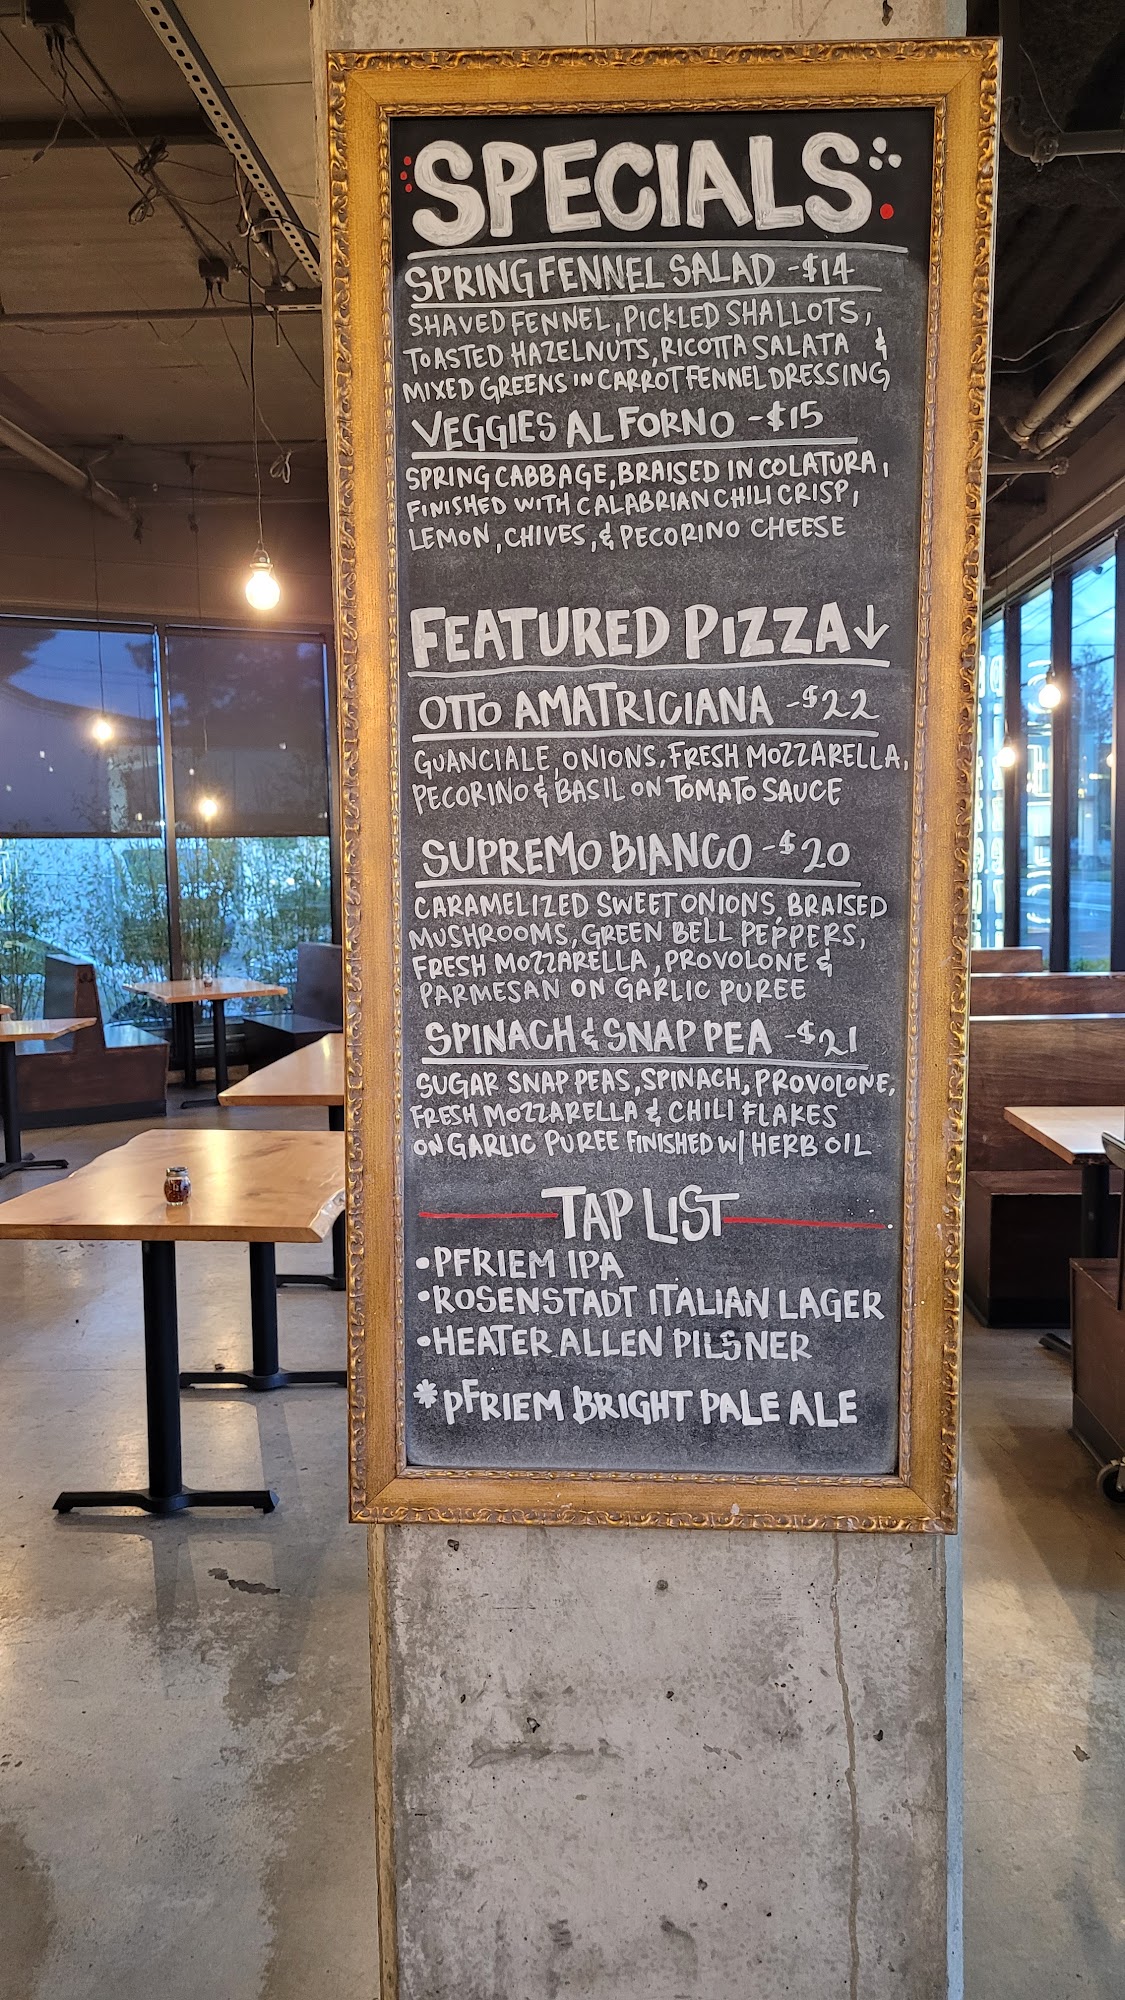 SPECIALS
SPRING FENNEL SALAD - $14
SHAVED FENNEL, PICKLED SHALLOTS,
TOASTED HAZELNUTS, RICOTTA SALATA &
MIXED GREENS IN CARROT FENNEL DRESSING
VEGGIES AL FORNO - $15
SPRING CABBAGE, BRAISED IN COLATURA,
FINISHED WITH CALABRIAN CHILI CRISP,
LEMON, CHIVES, & PECORINO CHEESE
FEATURED PIZZA ↓
OTTO AMATRICIANA - $22
GUANCIALE, ONIONS, FRESH MOZZARELLA,
PECORINO & BASIL ON TOMATO SAUCE
SUPREMO BIANCO - $20
CARAMELIZED SWEET ONIONS, BRAISED
MUSHROOMS, GREEN BELL PEPPERS,
FRESH MOZZARELLA, PROVOLONE &
PARMESAN ON GARLIC PUREE
SPINACH & SNAP PEA - $21
SUGAR SNAP PEAS, SPINACH, PROVOLONE,
FRESH MOZZARELLA & CHILI FLAKES
ON GARLIC PUREE FINISHED W/ HERB OIL
TAP LIST
•PFRIEM IPA
•ROSENSTADT ITALIAN LAGER
•HEATER ALLEN PILSNER
*PFRIEM BRIGHT PALE ALE